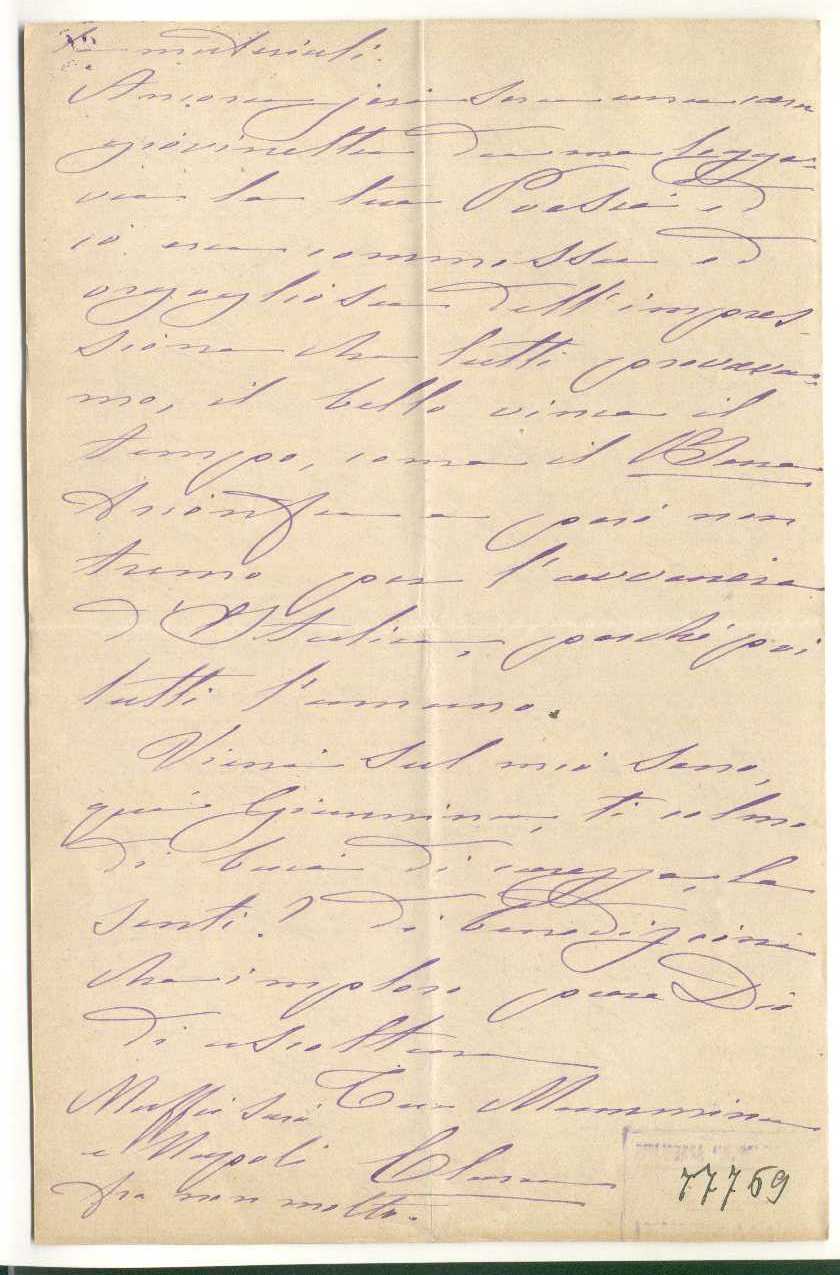 te materiali.
Ancora jeri sera una cara
giovinetta Dama legge-
va la tua Poesia e
io era commossa ed
orgogliosa dell'impres-
sione che tutti provava-
mo, il bello vince il
tempo, come il Bene
trionfa e però non
tremo per l'avvenire
d'Italia, perchè poi
tutti l'amano.
Vieni sul mio seno,
quì Giannina, ti colmo
di baci di carezze, le
senti? di benedizioni
che imploro pure Dio
di ascoltare
Tua Mammina
Clara
Maffei sarà
a Napoli
fra non molto.
77769